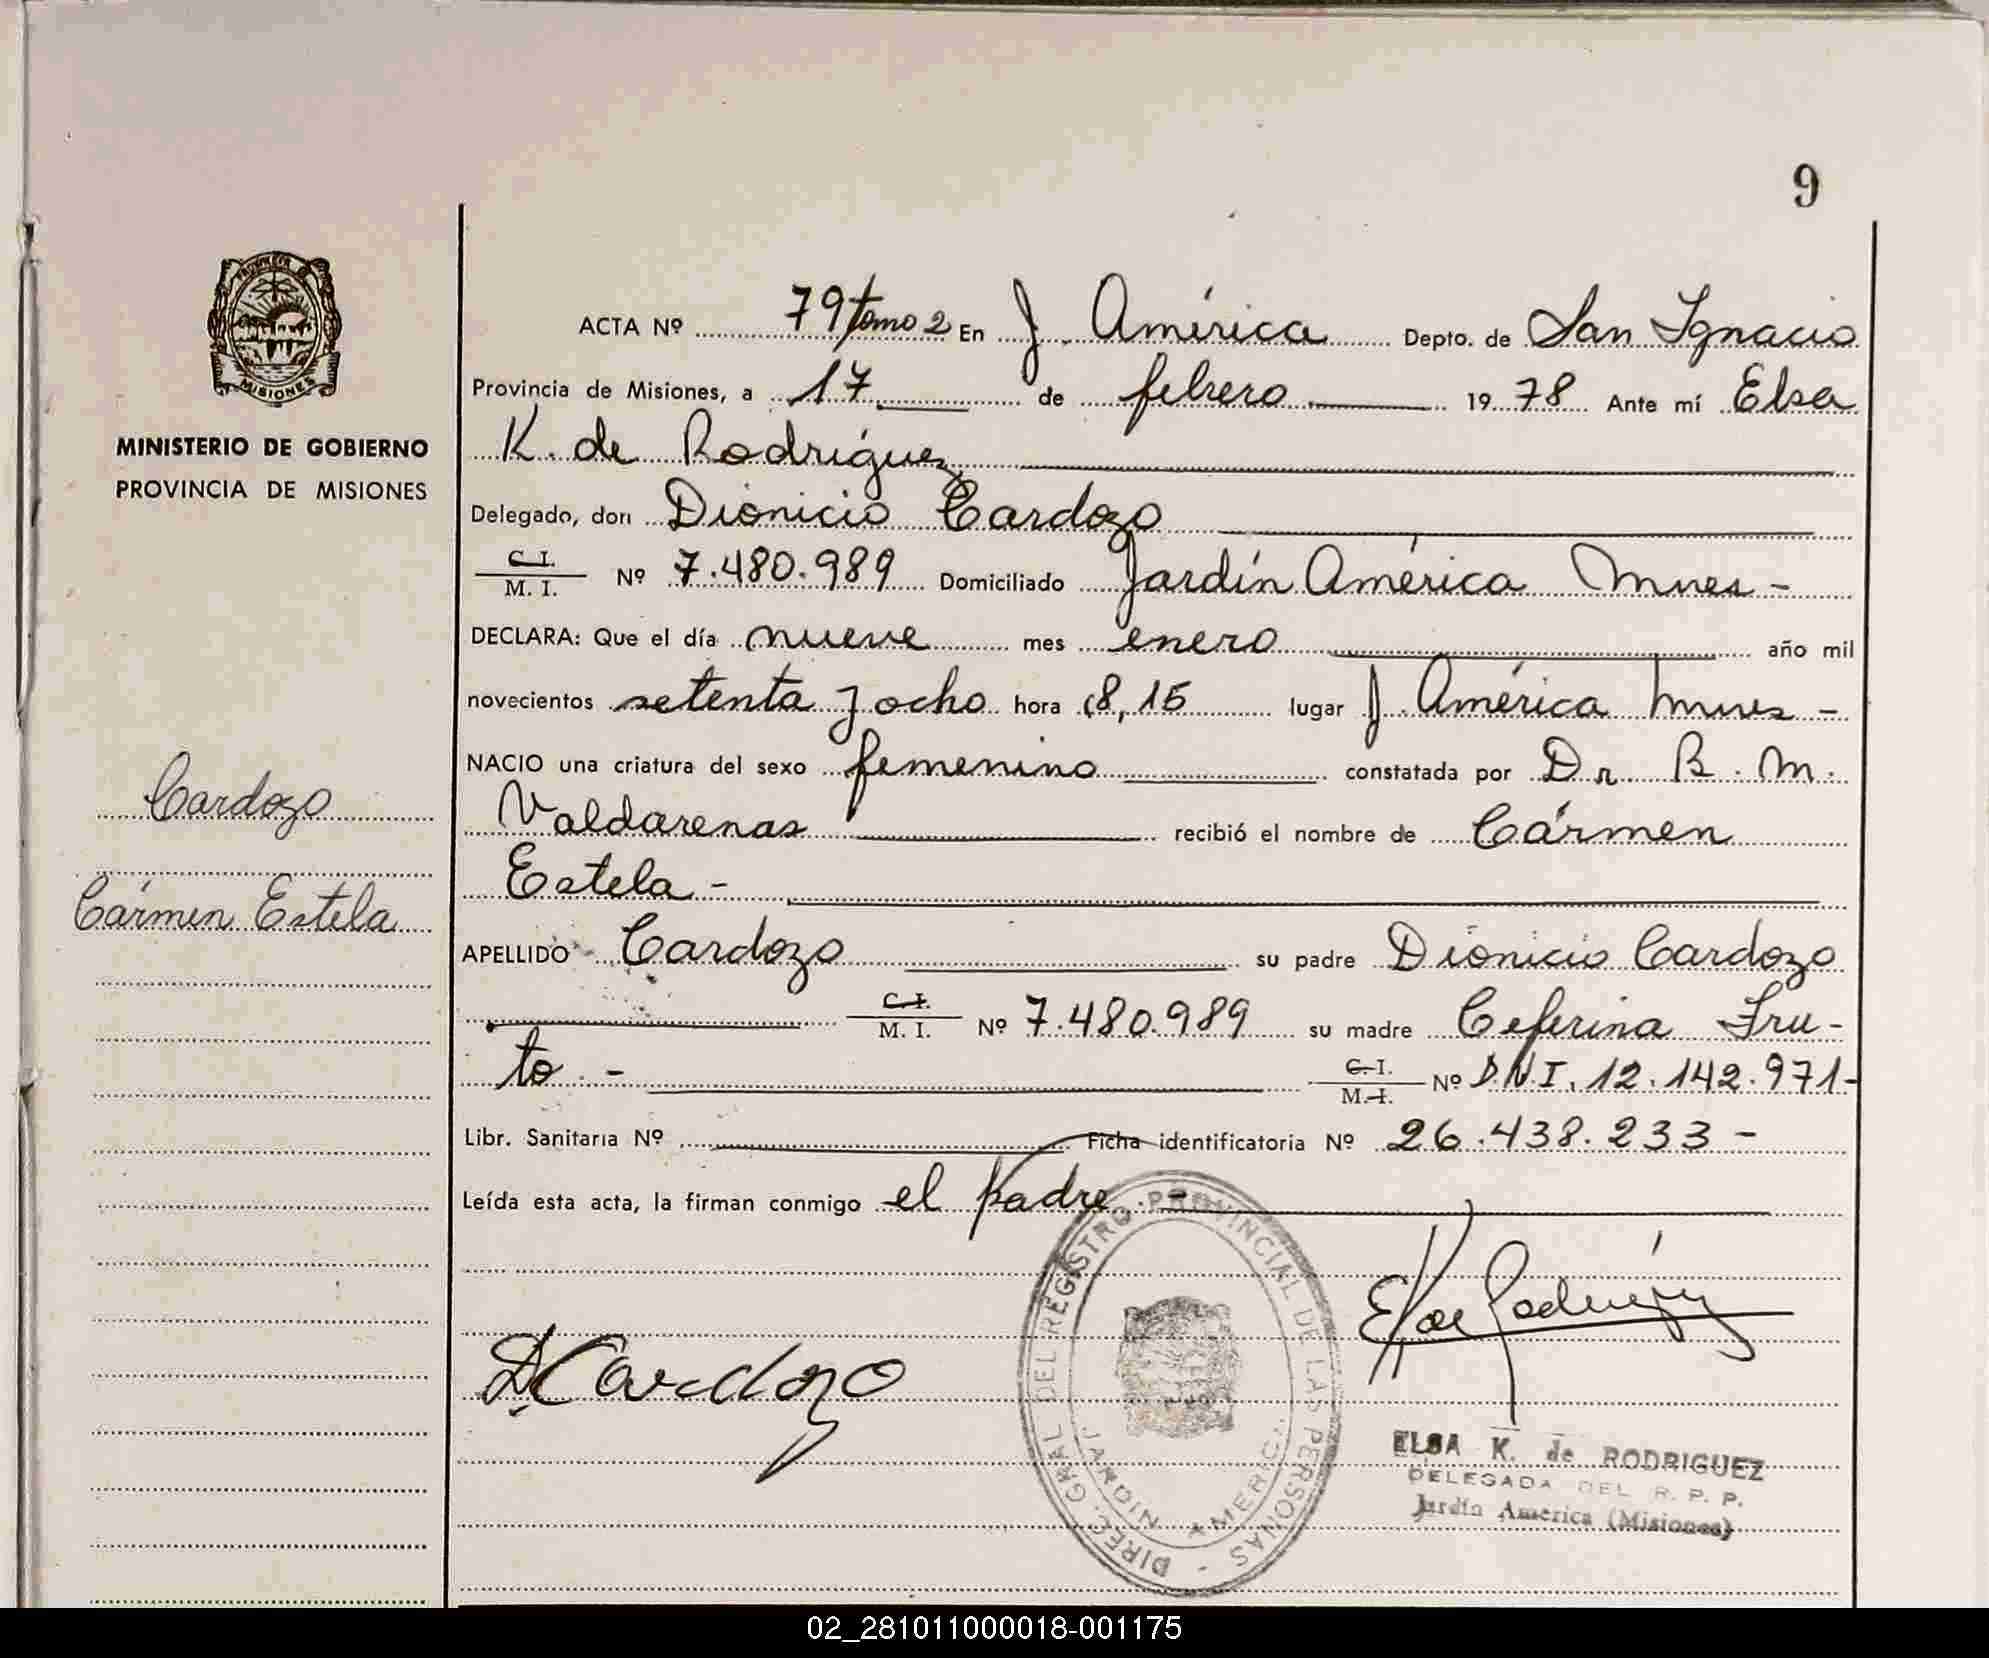 9
PROVINCIA DE
MISIONES
MINISTERIO DE GOBIERNO
PROVINCIA DE MISIONES
Cardozo
Cármen Estela
ACTA Nº 79 tomo 2 En J. América Depto. de San Ignacio
Provincia de Misiones, a 17 de febrero 1978 Ante mí Elsa
K. de Rodríguez
Delegado, don Dionicio Cardozo
C. I.
M. I. Nº 7.480.989 Domiciliado Jardín América Mnes -
DECLARA: Que el día nueve mes enero año mil
novecientos setenta y ocho hora 8,15 lugar J. América Mnes -
NACIO una criatura del sexo femenino constatada por Dr B. M.
Valdarenas recibió el nombre de Cármen
Estela -
APELLIDO Cardozo su padre Dionicio Cardozo
C. I.
M. I. Nº 7.480.989 su madre Ceferina Fru-
to - C. I.
M. I. Nº D.N.I. 12.142.971-
Libr. Sanitaria Nº Ficha identificatoria Nº 26.438.233 -
Leída esta acta, la firman conmigo el padre -
D. Cardozo
DIREC. GRAL DEL REGISTRO PROVINCIAL DE LAS PERSONAS -
JARDIN AMERICA
E K de Rodríguez
ELSA K. de RODRIGUEZ
DELEGADA DEL R. P. P.
Jardín America (Misiones)
02_281011000018-001175